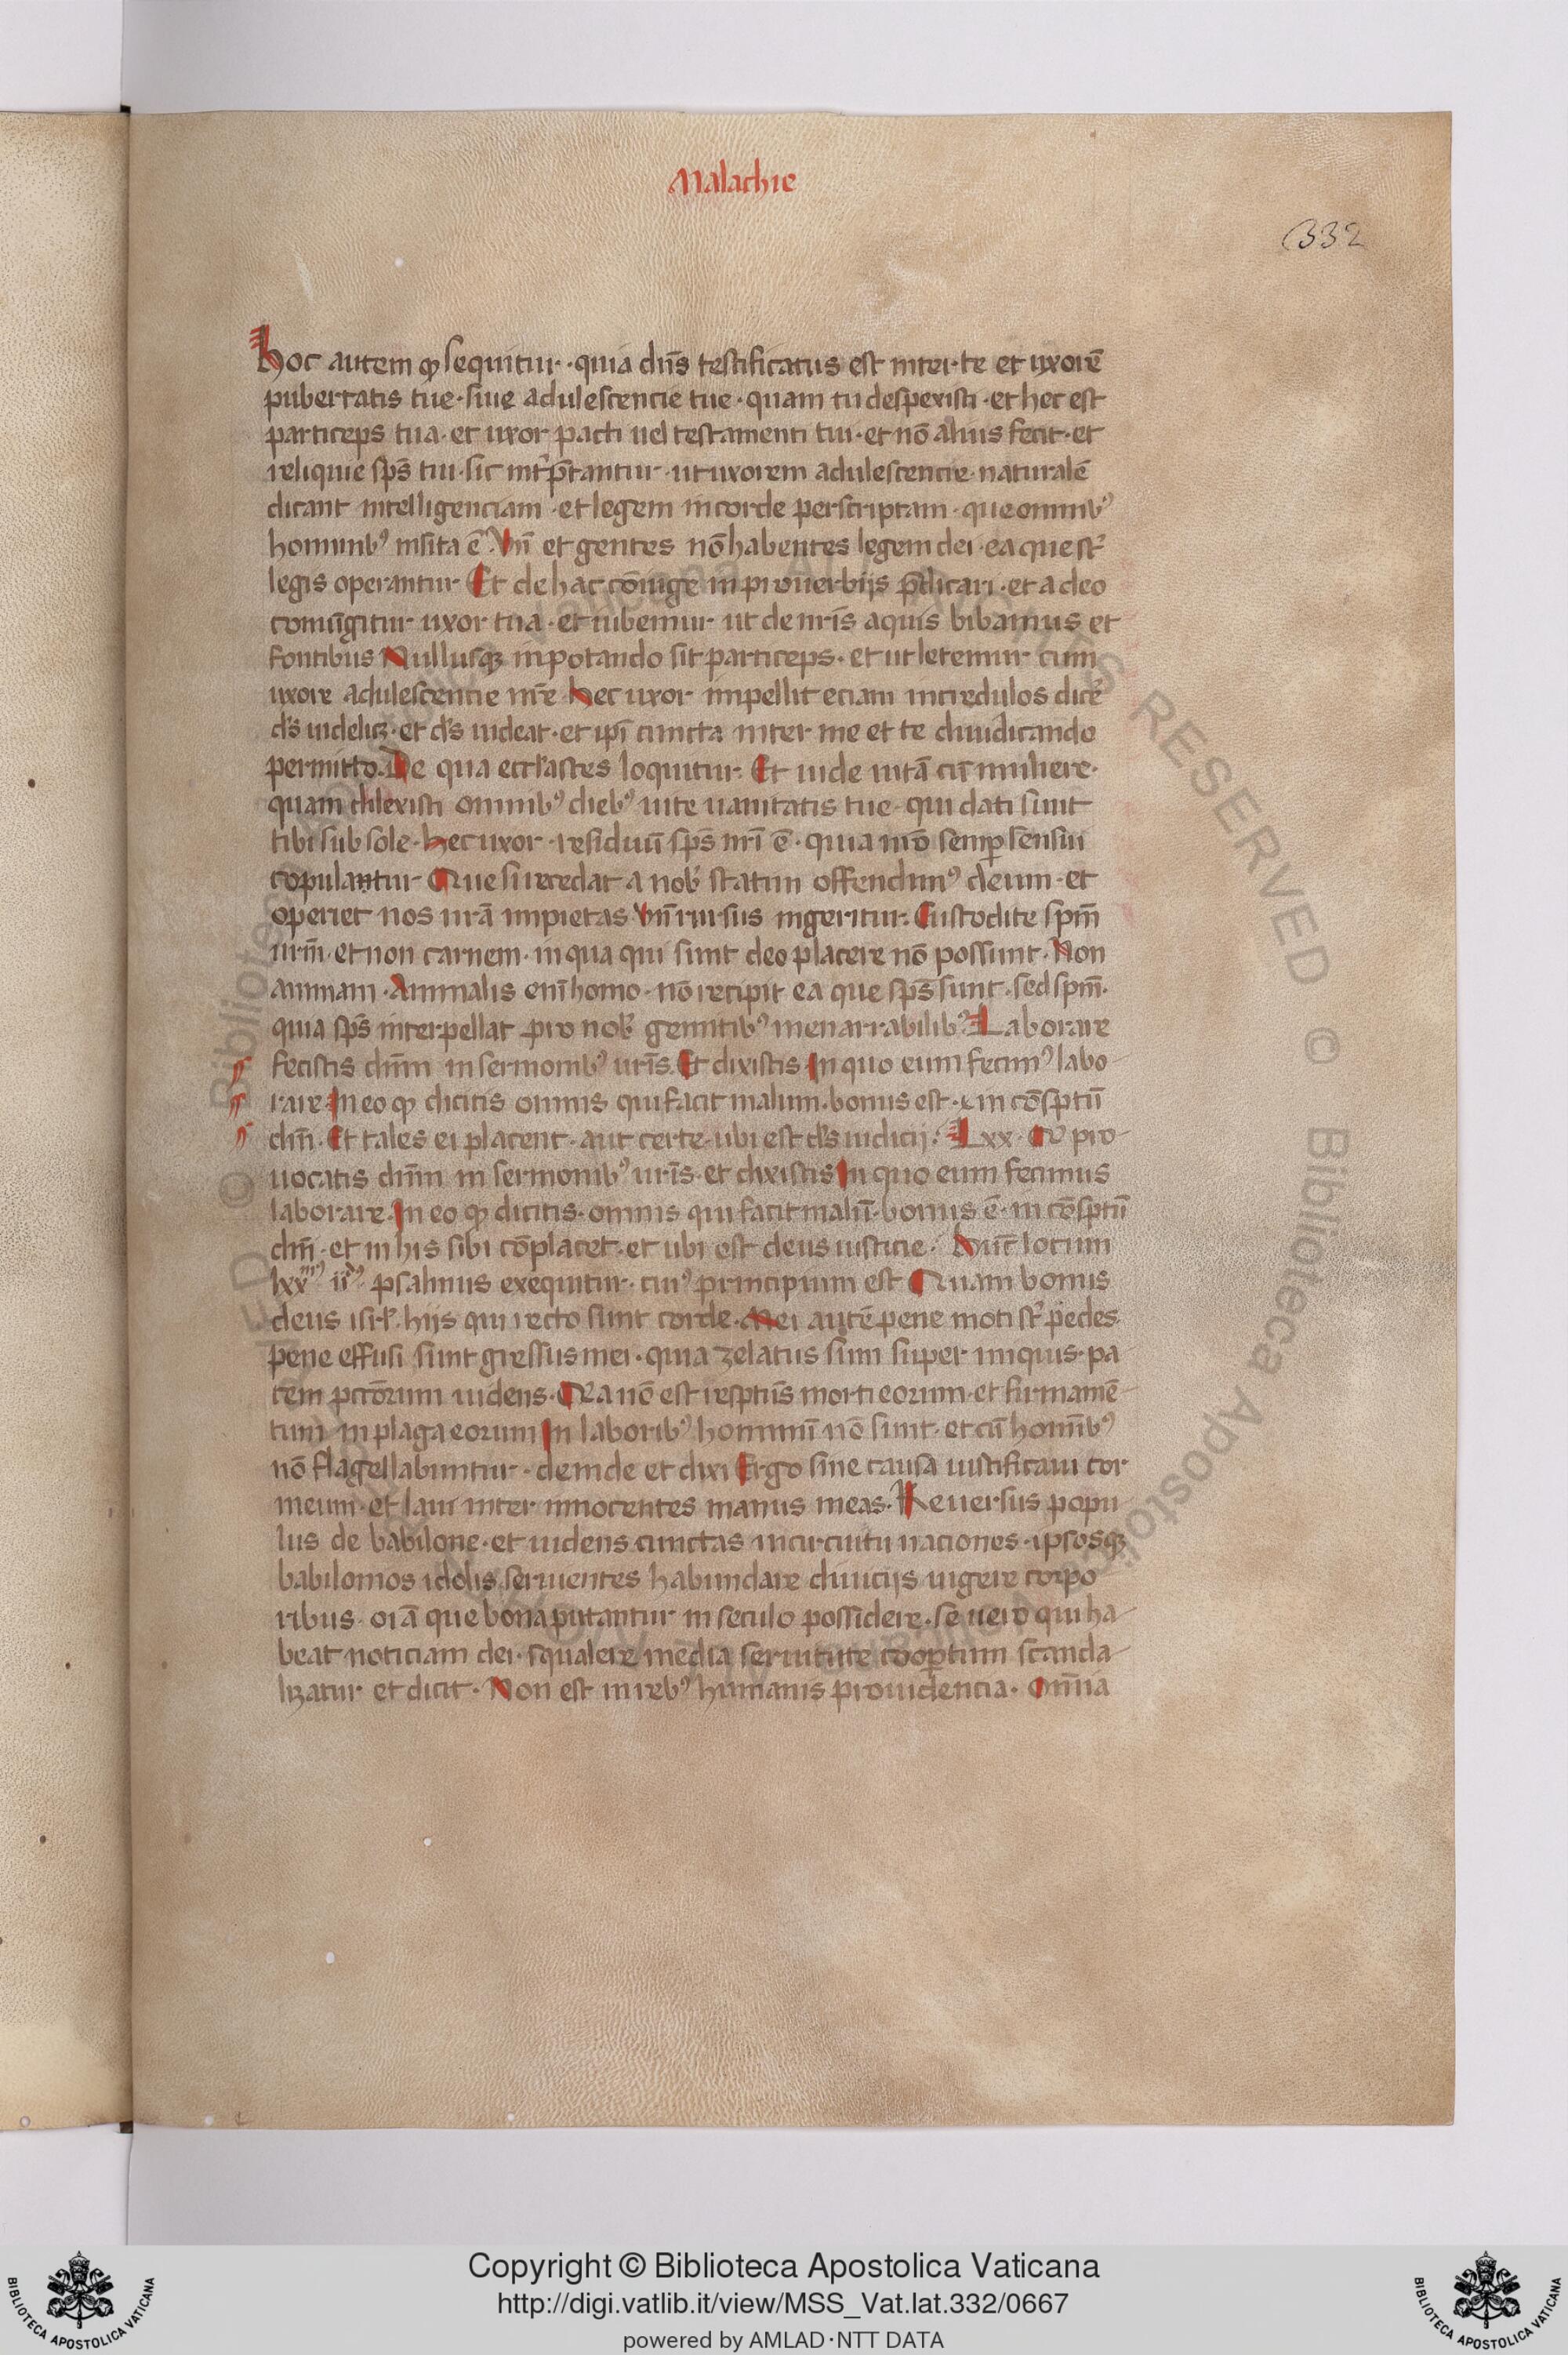 Malachie
332
Hoc autem qđ sequitur · quia dn̄s testificatus est inter te et uxorē
pubertatis tue · siue adulescencie tue · quam tu despexisti · et hec est
particeps tua · et uxor pacti uel testamenti tui · et nō alius fecit · et
reliquie sp̄s tui · sic int̉p̄tantur · ut uxorem adulescencie · naturalē
dicant intelligenciam · et legem in corde perscriptam · que omnibꝰ
hominibꝰ insita ē · Vn̄ et gentes nō habentes legem dei · ea que st̉
legis operantur · Et de hac cōiuge in prouerbijs p̄dicari · et a deo
coniūgitur uxor tua · et iubemur ut de nr̄is aquis bibamus et
fontibus Nullusqꝫ in potando sit particeps · et ut letemur cum
uxore adulescentie nr̄e Hec uxor impellit eciam incredulos dicē
ds̄ uidelicꝫ · et ds̄ uideat · et ip̄i cuncta inter me et te diiudicando
permitto. De qua eccl̄astes loquitur. Et uide uitā cū muliere ·
quam dilexisti omnibꝰ diebꝰ uite uanitatis tue · qui dati sunt
tibi sub sole · Hec uxor · residuū sp̄s nr̄i ē · quia nr̄o semꝑ sensui
copulantur · Que si recedat a nob̄ statim offendimꝰ deum · et
operiet nos nr̄ā impietas Vn̄ rursus ingeritur. Custodite sp̄m
ur̄m · et non carnem · in qua qui sunt deo placere nō possunt · Non
animam · Animalis eni̅ homo · nō recipit ea que sp̄s sunt · sed sp̄m ·
quia sp̄s interpellat pro nob̄ gemitibꝰ inenarrabilibꝰ · Laborare
fecistis dn̄m in sermonibꝰ ur̄is. Et dixistis In quo eum fecimꝰ labo
rare In eo qđ dicitis omnis qui facit malum · bonus est · in cōspectū
dn̄i · Et tales ei placent · aut certe · ubi est ds̄ iudicij : Lxx · Qi pro
uocatis dn̄m in sermonibꝰ ur̄is · et dixistis In quo eum fecimus
laborare · In eo qđ dicitis · omnis qui facit malū · bonus ē · in cōspectū
dn̄i · et in his sibi cōplacet · et ubi est deus iusticie · Hunc locum
lxxꝰ iiꝰ psalmus exequitur · cuiꝰ principium est Quam bonus
deus isrl̄ · hijs qui recto sunt corde · Mei autē pene moti st̉ pedes ·
pene effusi sunt gressus mei · quia zelatus sum super iniquis · pa
cem pccōrum uidens · Qia nō est respectus morti eorum · et firmamē
tum in plaga eorum In laboribꝰ hominū nō sunt · et cū homībꝰ
nō flagellabuntur · deinde et dixi Ergo sine causa iustificaui cor
meum · et laui inter innocentes manus meas. Reuersus popu
lus de babilone · et uidens cunctas in circuitu naciones · ipsosqꝫ
babilonios idolis seruientes habundare diuicijs uigere corpo
ribus · oi̅ā que bona putantur in seculo possidere · se uero qui ha
beat noticiam dei · squalere media seruitute cooꝑtum scanda
lizatur et dicit · Non est in rebꝰ humanis prouidencia · Omīa
Copyright © Biblioteca Apostolica Vaticana
http://digi.vatlib.it/view/MSS_Vat.lat.332/0667
powered by AMLAD·NTT DATA
BIBLIOTECA APOSTOLICA VATICANA
BIBLIOTECA APOSTOLICA VATICANA